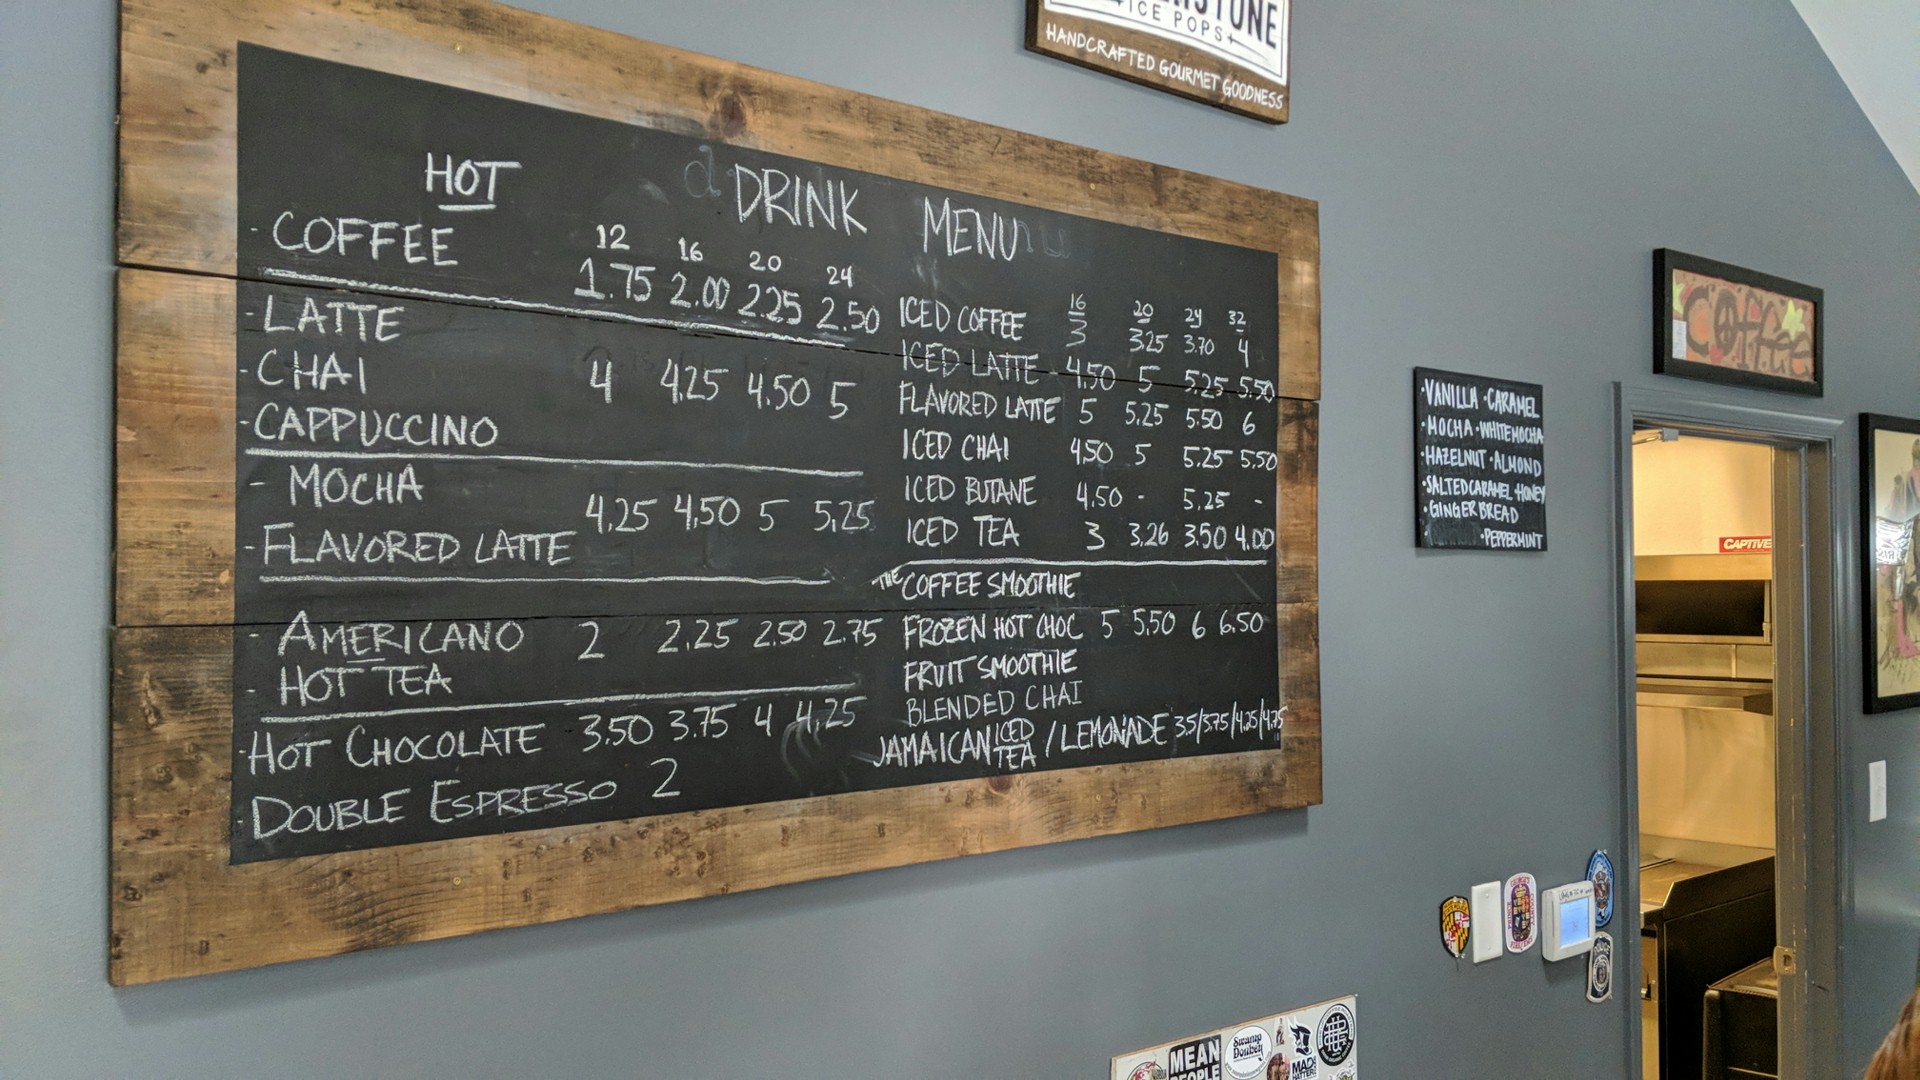 STONE
ICE POPS
HANDCRAFTED GOURMET GOODNESS
DRINK MENU
HOT
12 16 20 24
- COFFEE 1.75 2.00 2.25 2.50
- LATTE
- CHAI 4 4.25 4.50 5
- CAPPUCCINO
- MOCHA
4.25 4.50 5 5.25
- FLAVORED LATTE
- AMERICANO 2 2.25 2.50 2.75
- HOT TEA
· HOT CHOCOLATE 3.50 3.75 4 4.25
· DOUBLE ESPRESSO 2
16 20 24 32
ICED COFFEE 3 3.25 3.70 4
ICED LATTE - 4.50 5 5.25 5.50
FLAVORED LATTE 5 5.25 5.50 6
ICED CHAI 4.50 5 5.25 5.50
ICED BUTANE 4.50 - 5.25 -
ICED TEA 3 3.26 3.50 4.00
THE COFFEE SMOOTHIE
FROZEN HOT CHOC 5 5.50 6 6.50
FRUIT SMOOTHIE
BLENDED CHAI
JAMAICAN ICED TEA / LEMONADE 3.5/3.75/4.25/4.75
· VANILLA · CARAMEL
· MOCHA · WHITE MOCHA
· HAZELNUT · ALMOND
· SALTED CARAMEL · HONEY
· GINGERBREAD
· PEPPERMINT
COffee
CAPTIVE
MEAN
PEOPLE
Swamp
Donkey
MAD
HATTERS